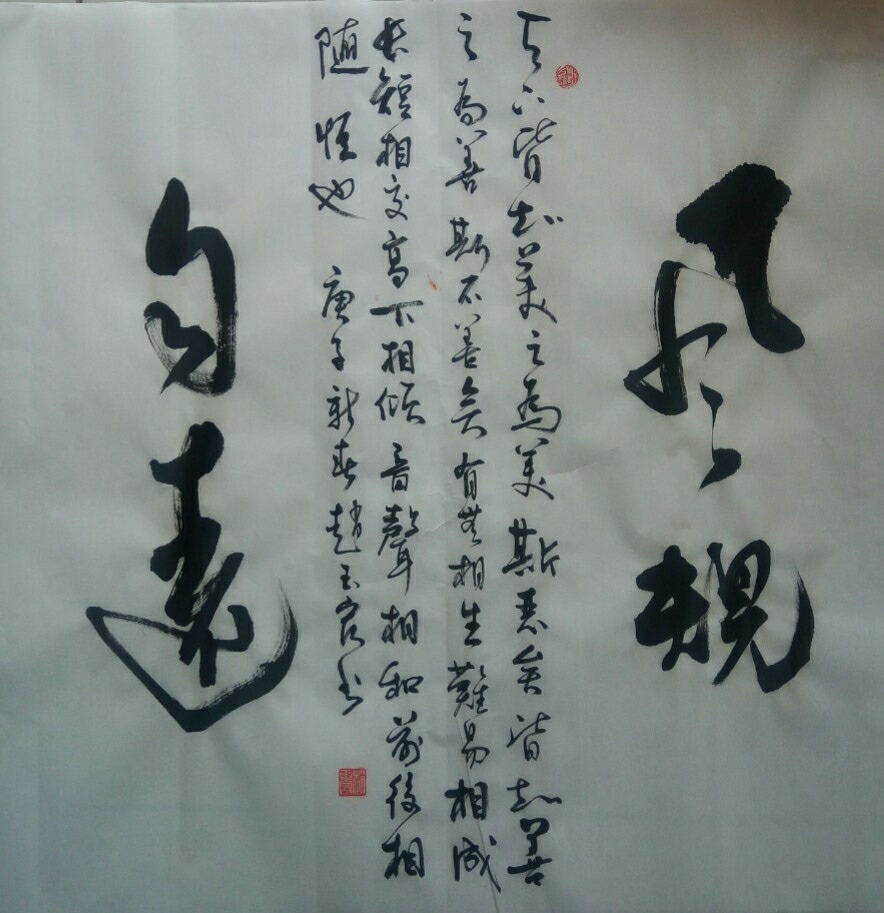 風規
天下皆知美之為美斯惡矣皆知善
之為善斯不善矣有無相生難易相成
長短相交高下相傾音聲相和前後相
随恒也 庚子新春趙玉书
自遠